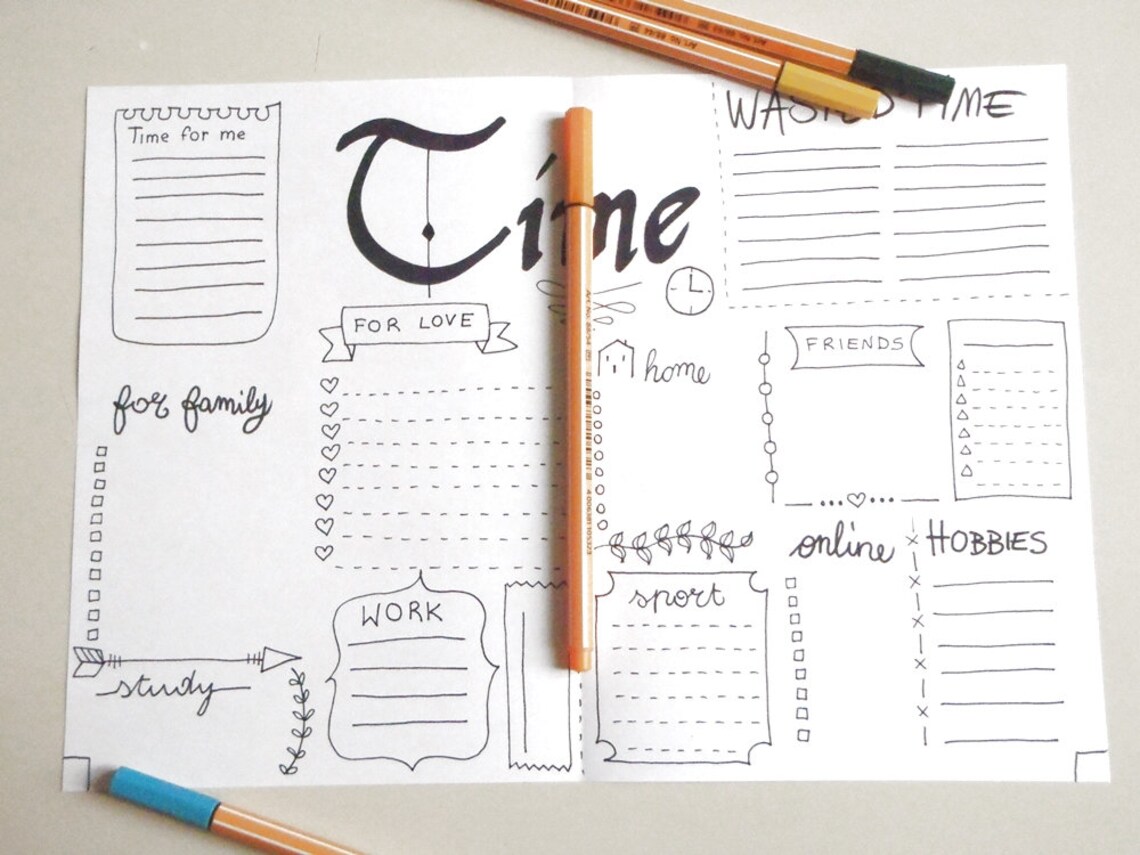 Time for me
Time
WASTED TIME
FOR LOVE
for family
home
FRIENDS
online
HOBBIES
WORK
sport
study